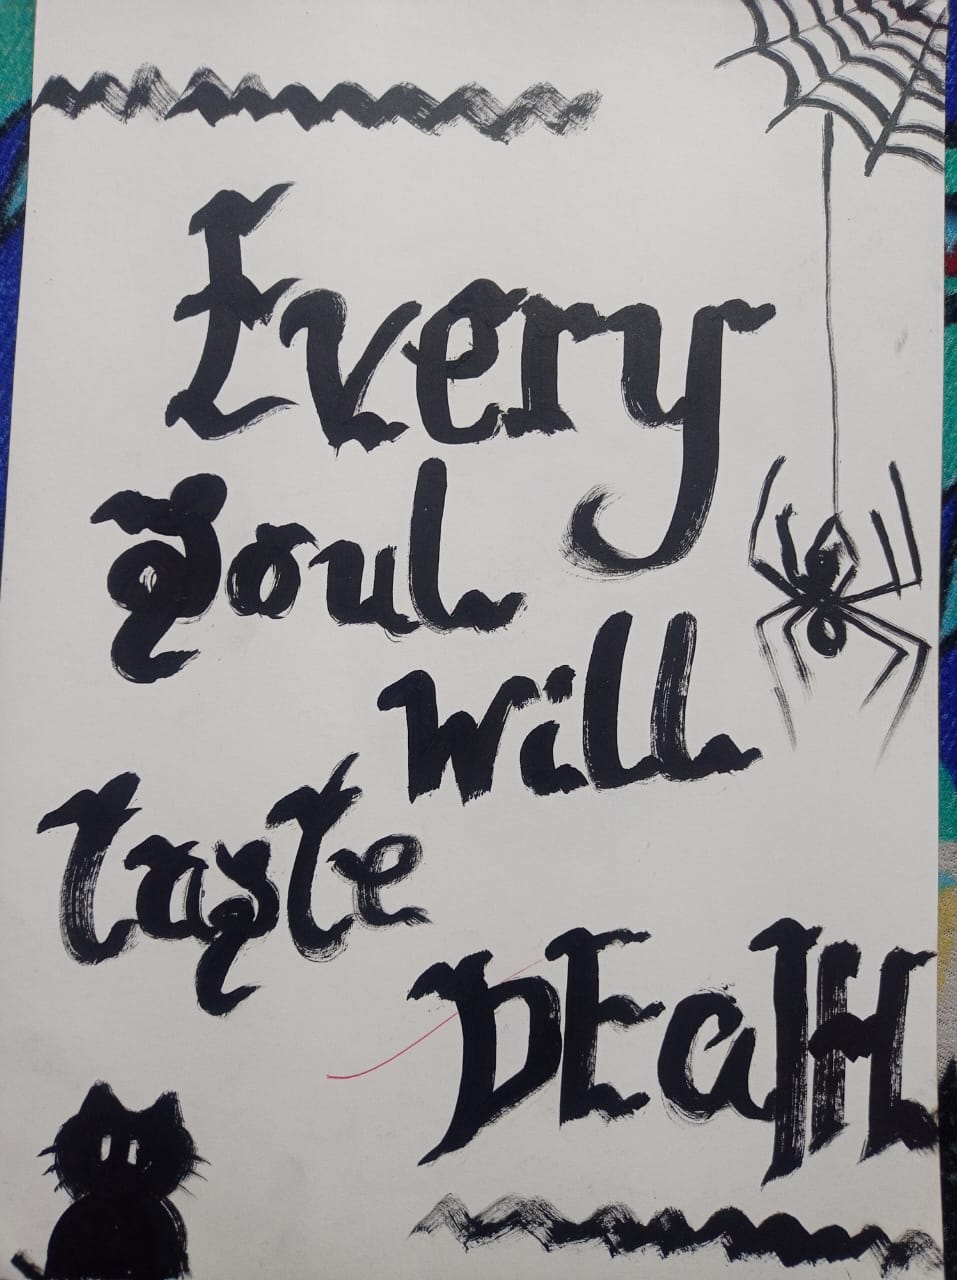 Every
Soul
will
taste
DEaTH